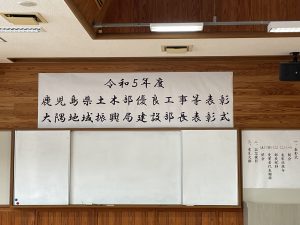 令和5年度
鹿児島県土木部優良工事等表彰
大隅地域振興局建設部長表彰式